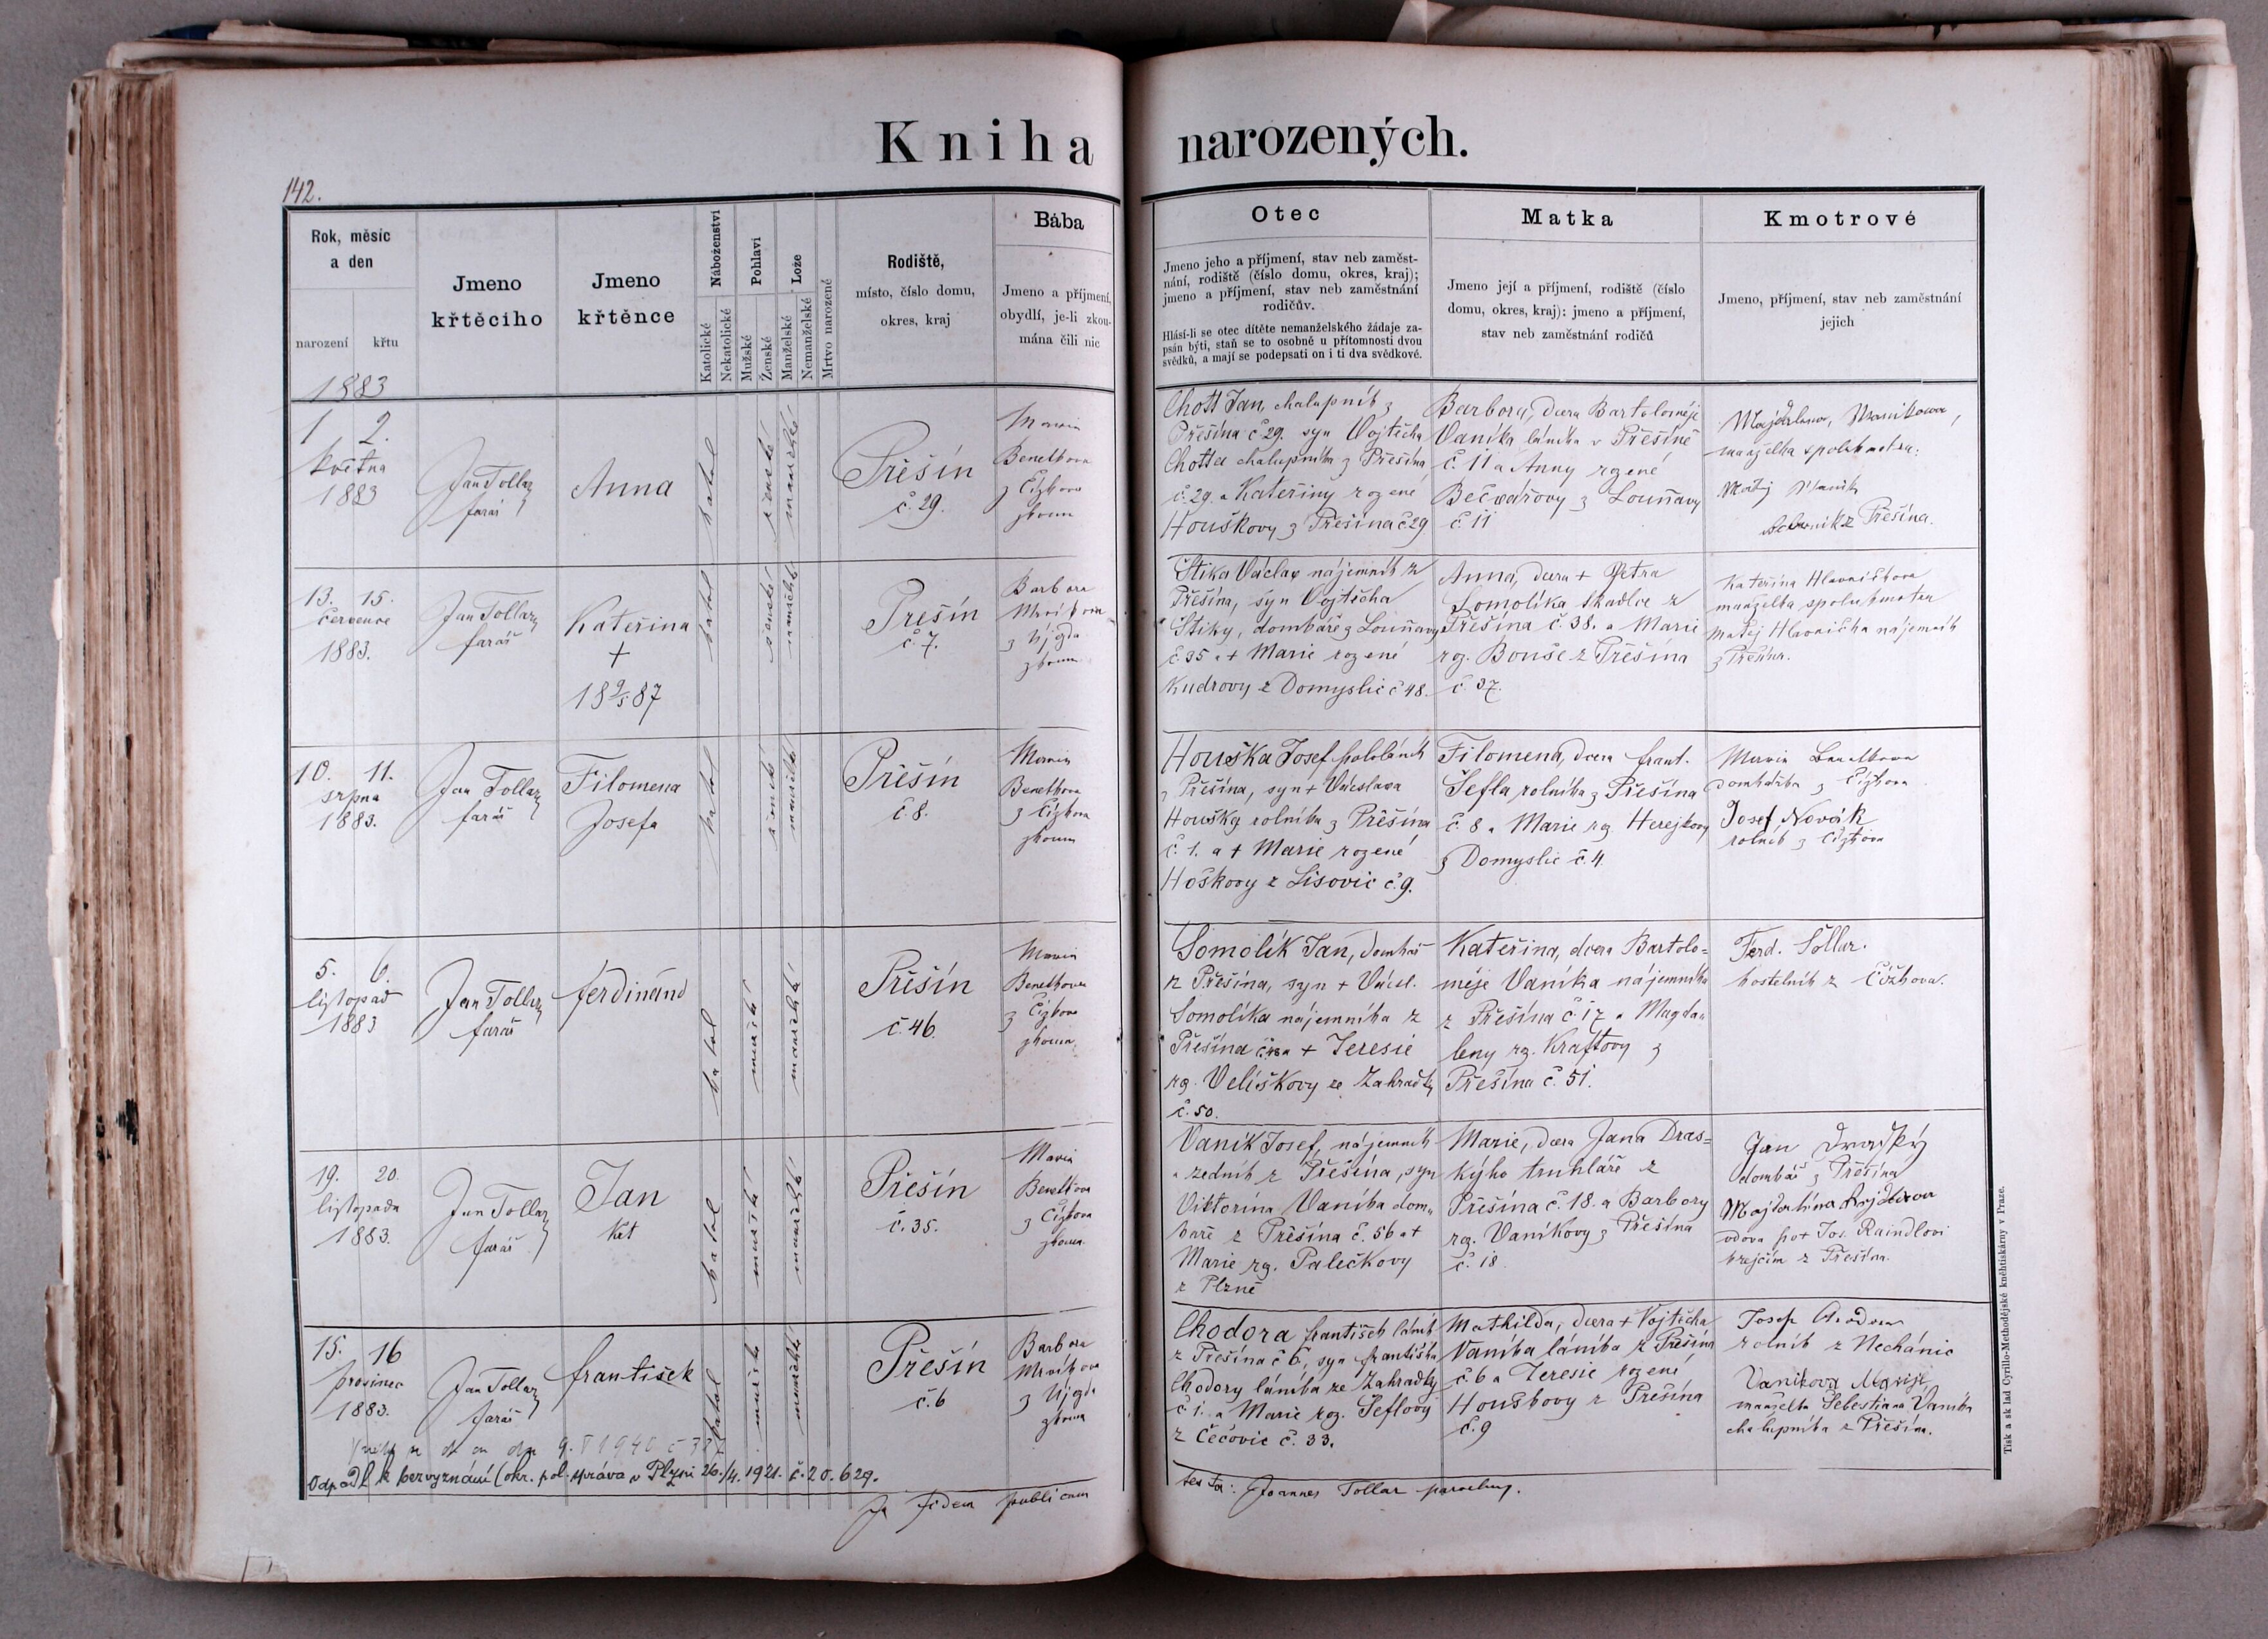 Kniha narozených.
142.
Rok, měsíc
a den
narození křtu
Jmeno
křtěcího
Jmeno
křtěnce
Náboženství
Katolické
Nekatolické
Pohlaví
Mužské
Ženské
Lože
Manželské
Nemanželské
Mrtvo narozené
Rodiště,
místo, číslo domu,
okres, kraj
Bába
Jmeno a příjmení,
obydlí, je-li zkou-
mána čili nic
Otec
Jmeno jeho a příjmení, stav neb zaměst-
nání, rodiště (číslo domu, okres, kraj);
jmeno a příjmení, stav neb zaměstnání
rodičův.
Hlásí-li se otec dítěte nemanželského žádaje za-
psán býti, staň se to osobně u přítomnosti dvou
svědků, a mají se podepsati on i ti dva svědkové.
Matka
Jmeno její a příjmení, rodiště (číslo
domu, okres, kraj); jmeno a příjmení,
stav neb zaměstnání rodičů
Kmotrové
Jmeno, příjmení, stav neb zaměstnání
jejich
1883
1 2.
května
1883
Jan Tollar
farář
Anna
katol
ženské
manželské
Přešín
č. 29.
Marie
Benetkova
z Čížkova
zkoum
Chott Jan, chalupník z
Přešína č 29. syn Vojtěcha
Chotta chalupníka z Přešína
č. 29. a Kateřiny rozené
Houškovy z Přešína č 29
Barbora, dcera Bartoloměje
Vaníka láníka v Přešíně
č. 11 a Anny rozené
Bečvařovy z Louňavy
č 11
manželka spolukmotra.
Matěj Vaník
z Přešína.
13. 15.
července
1883.
Jan Tollar
farář
Kateřina
+
18 9/5 87
katol
ženské
manželské
Přešín
č. 7.
Barbora
z Újezda
zkoum
Štika Václav nájemník z
Přešína, syn Vojtěcha
Štiky, domkaře z Louňavy
č. 35 a + Marie rozené
Kudrovy z Domyslic č 48.
Anna, dcera + Petra
Somolíka tkadlce z
Přešína č 38. a Marie
rz. Bouše z Přešína
č. 37.
Kateřina Hlavničkova
manželka spolukmotra
Matěj Hlavnička nájemník
z Přešína.
10. 11.
srpna
1883.
Jan Tollar
farář
Filomena
Josefa
katol
ženské
manželské
Přěšín
č. 8.
Marie
Benetkova
z Čížkova
zkoum
Houška Josef pololáník
z Přešína, syn + Václava
Houšky rolníka z Přěšína
č. 1. a + Marie rozené
Hoškovy z Lisovic č. 9.
Filomena, dcera frant.
Šefla rolníka z Přešína
č. 8 a Marie rz. Herejkovy
z Domyslic č. 4
Marie Benetkova
domkářka z Čížkova
Josef Novák
rolník z Čížkova
5. 6.
listopad
1883
Jan Tollar
farář
ferdinand
katol
mužské
manželské
Přěšín
č. 46.
Marie
Benetkova
z Čížkova
zkoum.
Somolík Jan, domkář
z Přešína, syn + Václ.
Somolíka nájemníka z
Přešína č. 48 a + Teresie
rz. Veliškovy ze Zahrádky
č. 50.
Kateřina, dcera Bartolo-
měje Vaníka nájemníka
z Přešína č. 17 a Magda-
leny rz. Kraftovy z
Přešína č. 51.
Ferd. Šollar.
kostelník z Čížkova.
19. 20.
listopadu
1883.
Jan Tollar
farář
Jan
Křt
katol
mužské
manželské
Přěšín
č. 35.
Marie
Benetkova
z Čížkova
zkoum.
Vaník Josef, nájemník
a zedník z Přešína, syn
Viktorina Vaníka dom-
kaře z Přěšína č. 56 a +
Marie rz. Palečkovy
z Plzně
Marie, dcera Jana Dras-
kýho truhláře z
Přěšína č. 18. a Barbory
rz. Vaníkovy z Přešína
č. 18
Jan
domkář z Přešína
vdova po + Jos. Raindlovi
krejčím z Přešína.
15. 16
prosinec
1883.
Jan Tollar
farář
františek
katol
mužské
manželské
Přešín
č. 6
Barbora
z Újezda
zkoum
Chodora františek láník
z Přešína č 6, syn františka
Chodory láníka ze Zahrádky
č 1. a Marie roz. Šeflovy
z Čečovic č. 33.
Mathilda, dcera + Vojtěcha
Vaníka láníka z Přešína
č. 6 a Teresie rozené
Houškovy z Přešína
č. 9
Josef Chodora
rolník z Nechánic
Vanikova Marije
manželka Šebestiana Vaníka
chalupníka z Přešína.
Odpadl k bezvyznání (okr. pol. správa v Plzni 26./4. 1921. č. 20.629.
In fidem publicam
testa: Joannes Tollar parochus.
Tisk a sklad Cyrillo-Methodějské kněhtiskárny v Praze.